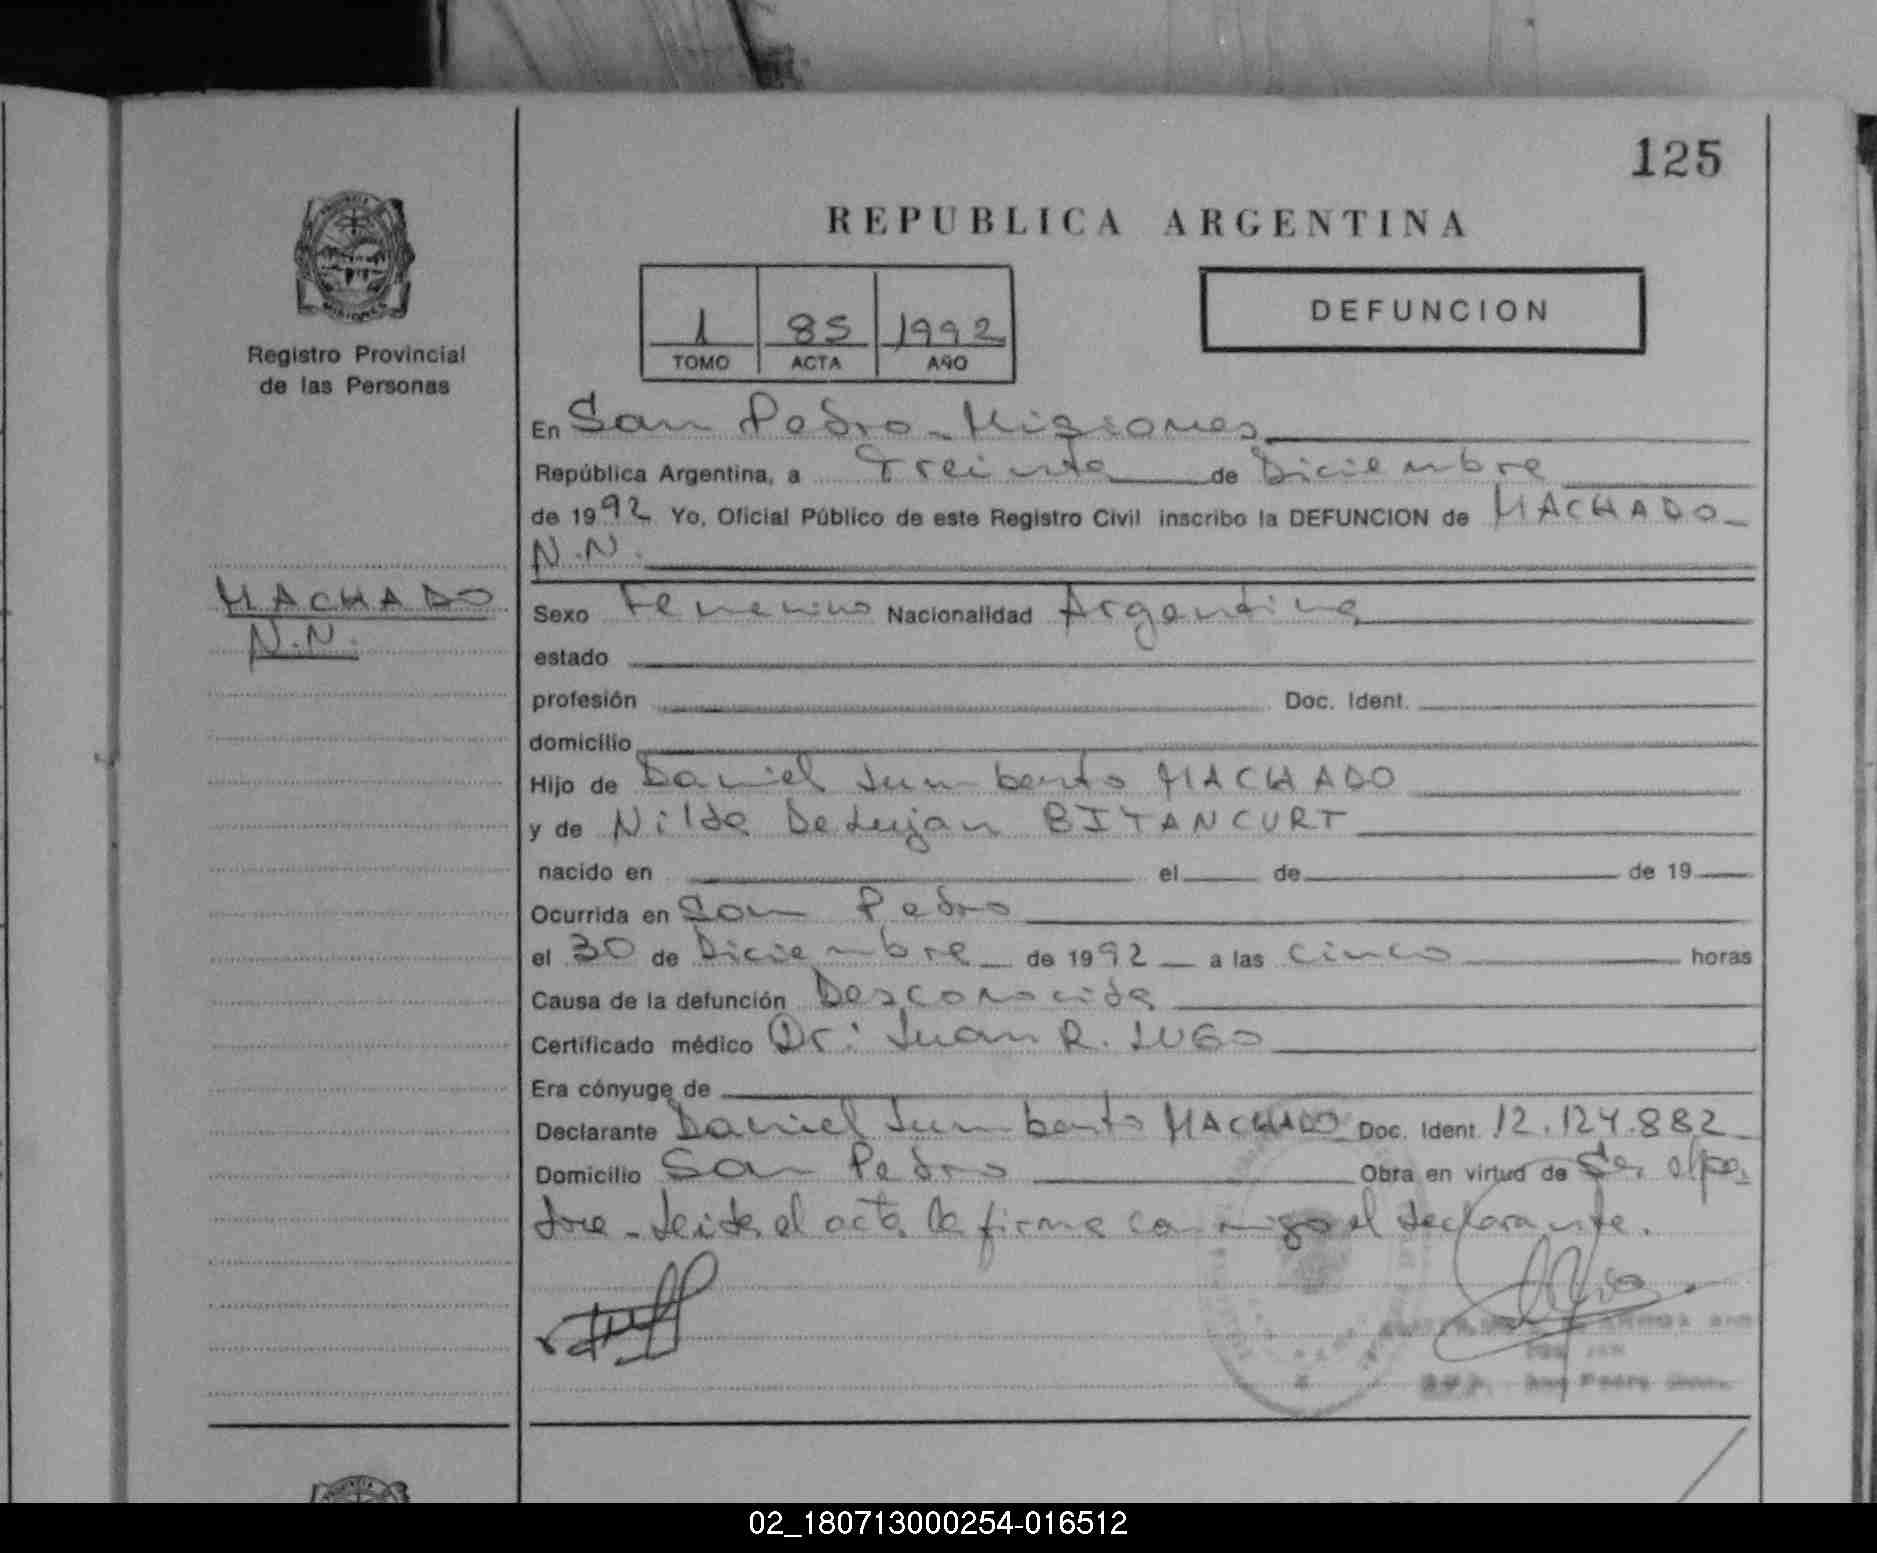 125
REPUBLICA ARGENTINA
DEFUNCION
1 85 1992
TOMO ACTA AÑO
Registro Provincial
de las Personas
MACHADO
N.N.
En San Pedro - Misiones
República Argentina, a Treinta de Diciembre
de 1992 Yo, Oficial Público de este Registro Civil inscribo la DEFUNCION de MACHADO
N.N.
Sexo Femenino Nacionalidad Argentina
estado
profesión Doc. Ident.
domicilio
Hijo de Daniel Lumberto MACHADO
y de Nilda De Lujan BITANCURT
nacido en el de de 19
Ocurrida en San Pedro
el 30 de Diciembre de 1992 a las cinco horas
Causa de la defunción Desconocida
Certificado médico Dr: Juan R. LUGO
Era cónyuge de
Declarante Daniel Lumberto MACHADO Doc. Ident. 12.124.882
Domicilio San Pedro Obra en virtud de Ser el pa-
dre - Leida el acta la firma conmigo el declarante.
02_180713000254-016512